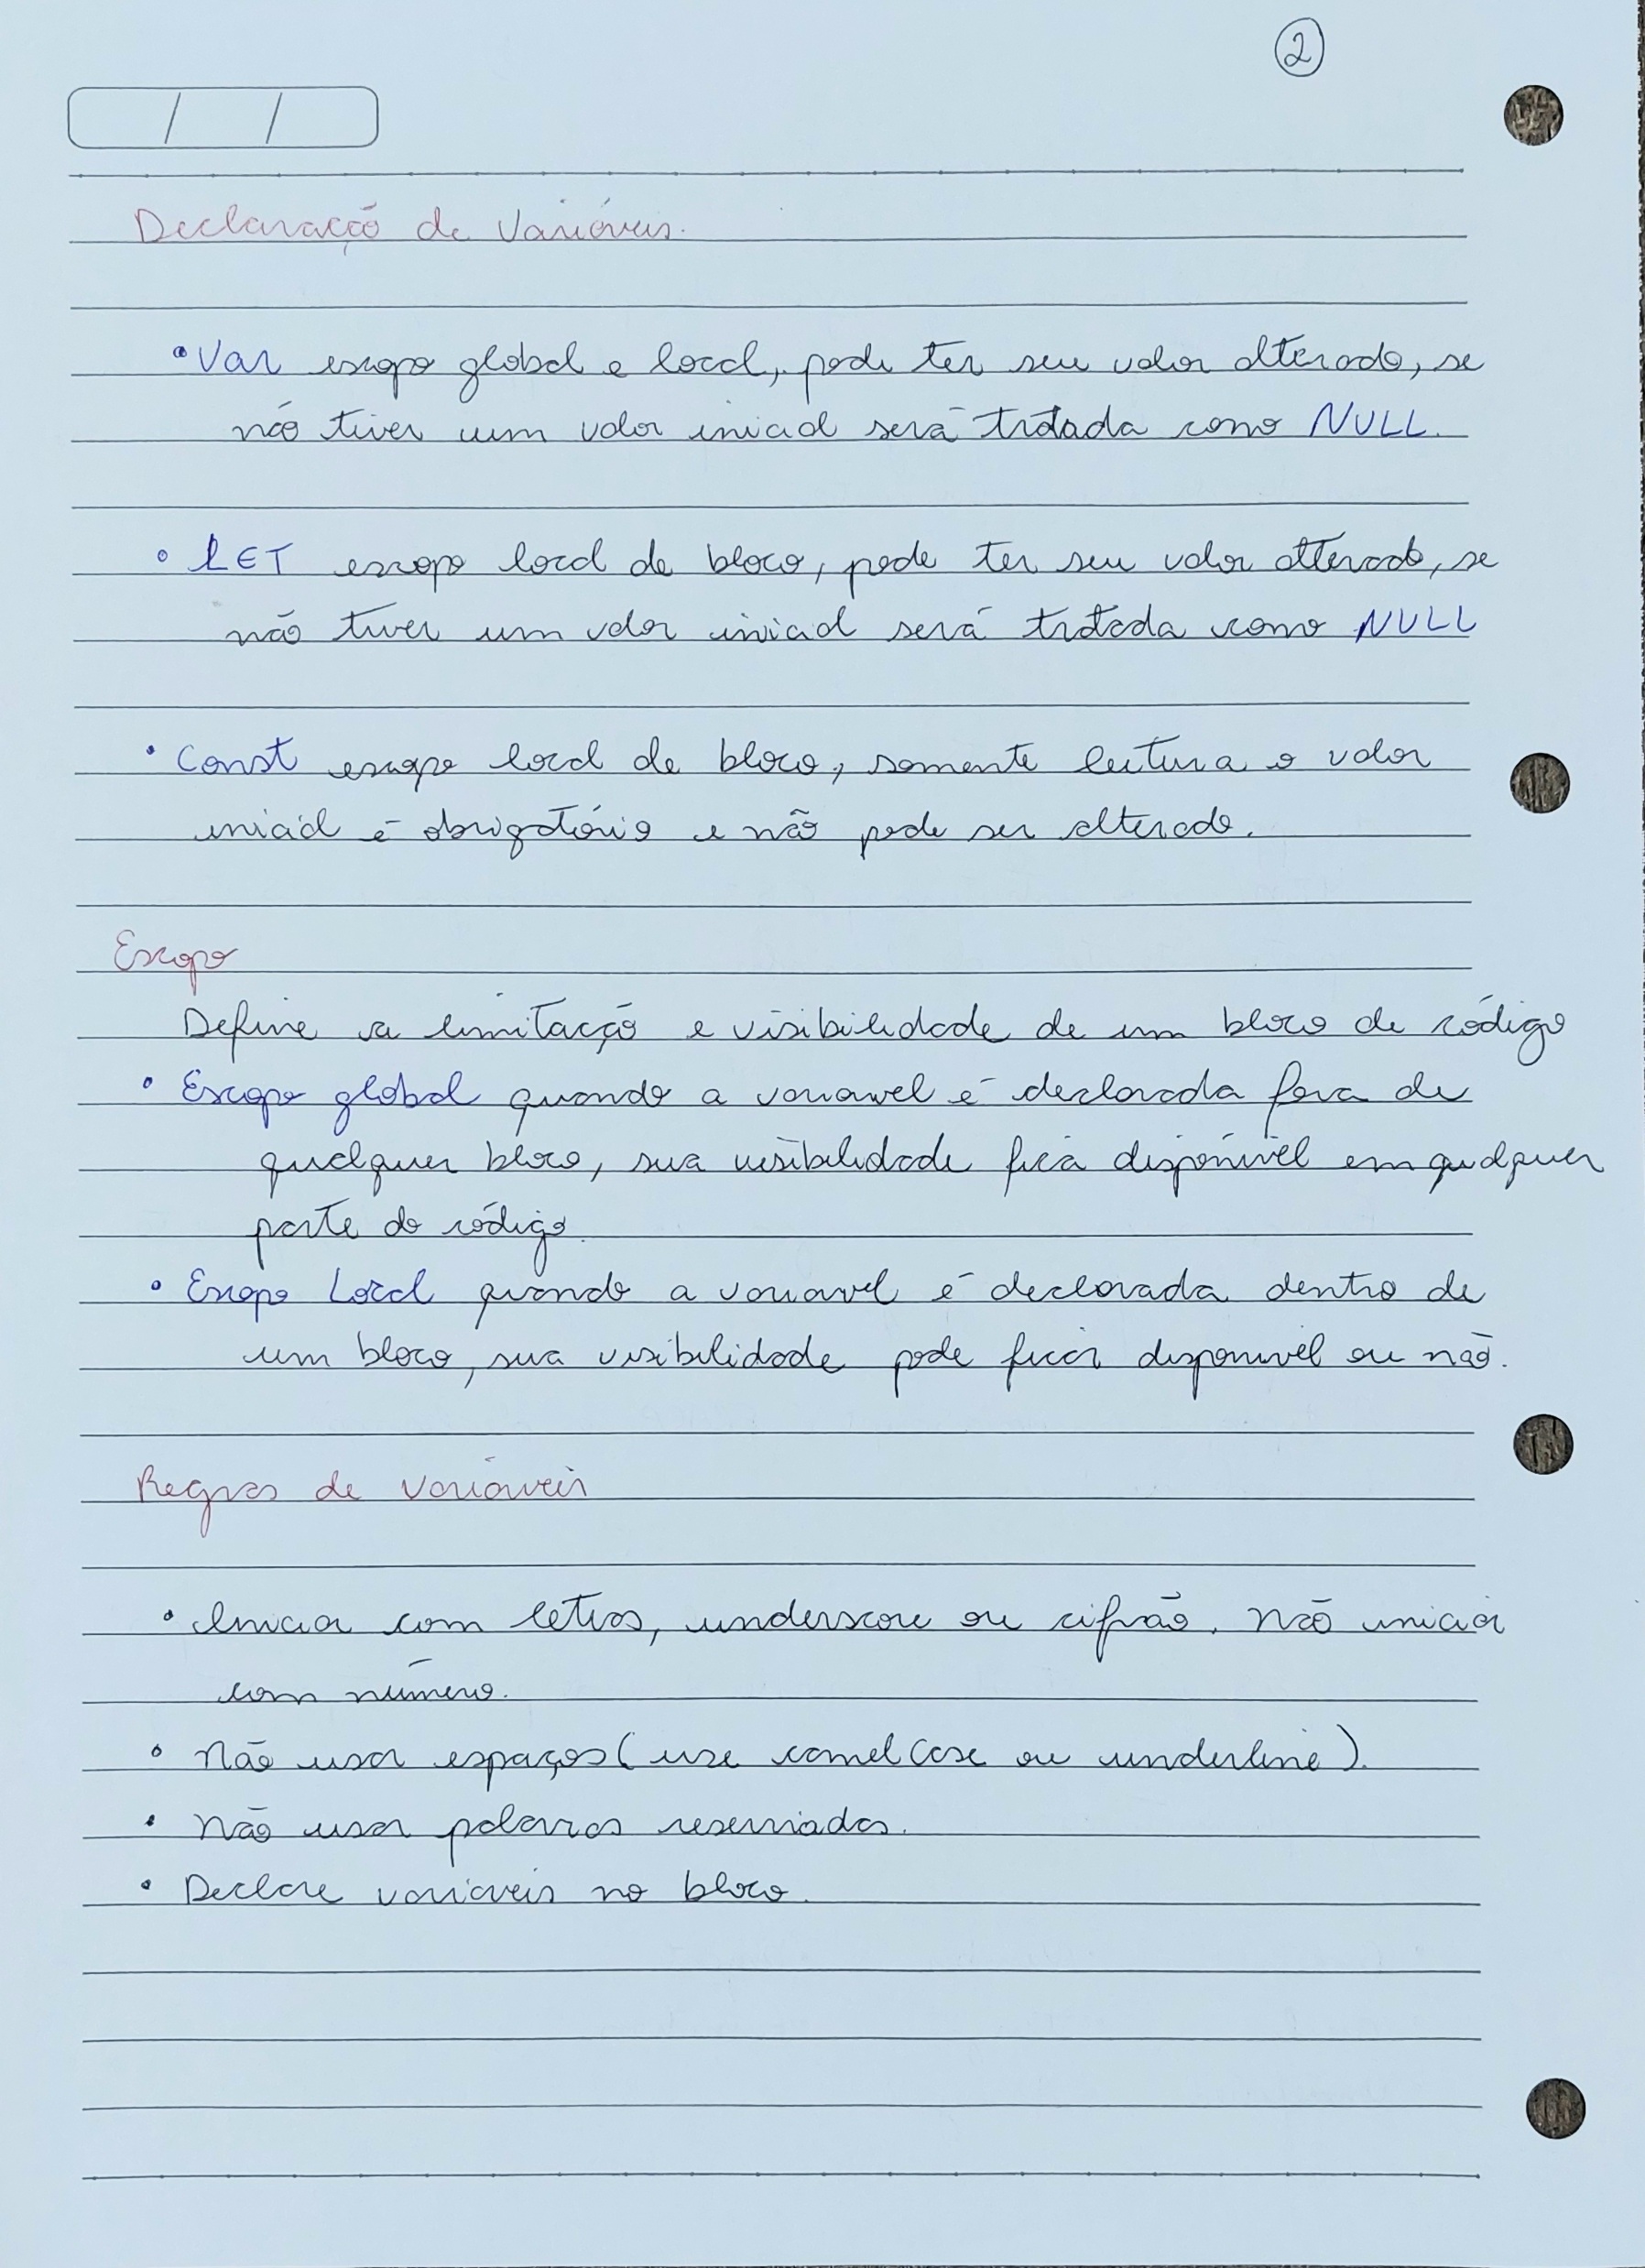 2
/ /
Declaração de Variáveis.
• Var escopo global e local, pode ter seu valor alterado, se
não tiver um valor inicial será tratada como NULL.
• LET escopo local de bloco, pode ter seu valor alterado, se
não tiver um valor inicial será tratada como NULL
• Const escopo local de bloco, somente leitura o valor
inicial é obrigatório e não pode ser alterado.
Escopo
Define a limitação e visibilidade de um bloco de código
• Escopo global quando a variavel é declarada fora de
qualquer bloco, sua visibilidade fica disponível em qualquer
parte do código.
• Escopo Local quando a variavel é declarada dentro de
um bloco, sua visibilidade pode ficar disponivel ou não.
Regras de variáveis
• Iniciar com letras, underscore ou cifrão. Não iniciar
com número.
• Não usar espaços (use camelCase ou underline).
• Não usar palavras reservadas.
• Declare variaveis no bloco.